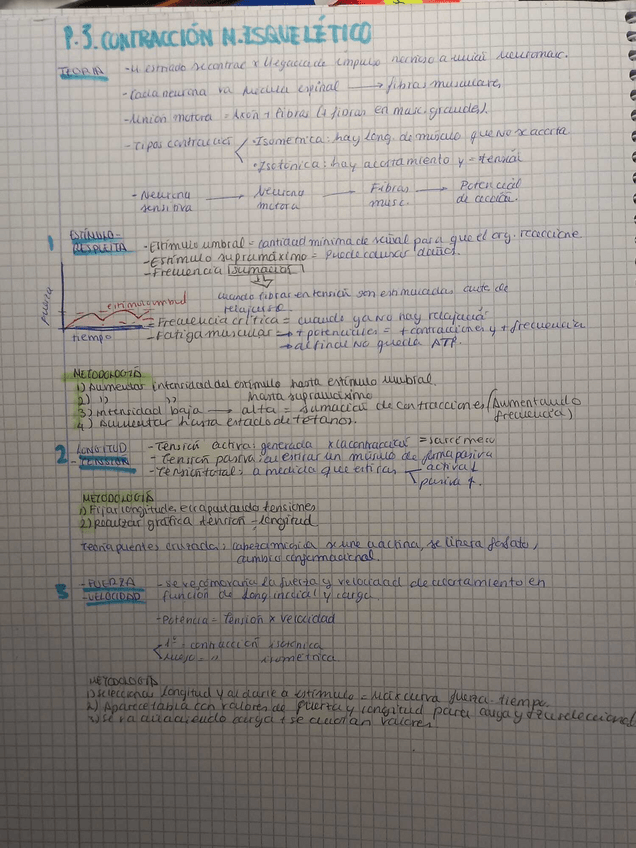 P.3. CONTRACCIÓN M. ESQUELÉTICO
TEORÍA - M. estriado se contrae x llegada de impulso nervioso a unión neuromusc.
- Cada neurona va médula espinal → fibras musculares
- Unión motora = axón + fibras (+ fibras en musc. grandes).
- Tipos contracciones • Isométrica: hay long. de músculo que no se acorta
• Isotónica: hay acortamiento y = tensión
- Neurona sensitiva → Neurona motora → Fibras musc. → Potencial de acción.
1 ESTÍMULO - RESPUESTA - Estímulo umbral = cantidad mínima de señal para que el org. reaccione
- Estímulo supramáximo = puede causar daños.
- Frecuencia sumación
fuerza
estímulo umbral
tiempo
cuando fibras en tensión son estimuladas antes de relajarse
= Frecuencia crítica = cuando ya no hay relajación
- Fatiga muscular → + potenciales = + contracciones y + frecuencia
→ al final no queda ATP.
METODOLOGÍA
1) Aumentar intensidad del estímulo hasta estímulo umbral.
2) " " hasta supramáximo
3) intensidad baja → alta = sumación de contracciones (Aumentando frecuencia)
4) Aumentar hasta estado de tétanos.
2 LONGITUD - TENSIÓN - Tensión activa: generada x la contracción = sarcómero
- Tensión pasiva: al estirar un músculo de forma pasiva
- Tensión total: a medida que estiras activa ↓
pasiva ↑.
METODOLOGÍA
1) Fijar longitud e ir apuntando tensiones
2) realizar gráfica tensión - longitud
Teoría puentes cruzados: cabeza miosina se une a actina, se libera fosfato,
cambio conformacional.
3 - FUERZA - VELOCIDAD - se ve comparada la fuerza y velocidad de acortamiento en
función de long inicial y carga.
- Potencia = tensión x velocidad
1º = contracción isotónica
luego = " isométrica
METODOLOGÍA
1) seleccionar longitud y al darle a estímulo = max curva fuerza-tiempo.
2) Aparece tabla con valores de fuerza y longitud para carga y seleccionar
3) se va añadiendo carga + se anotan valores